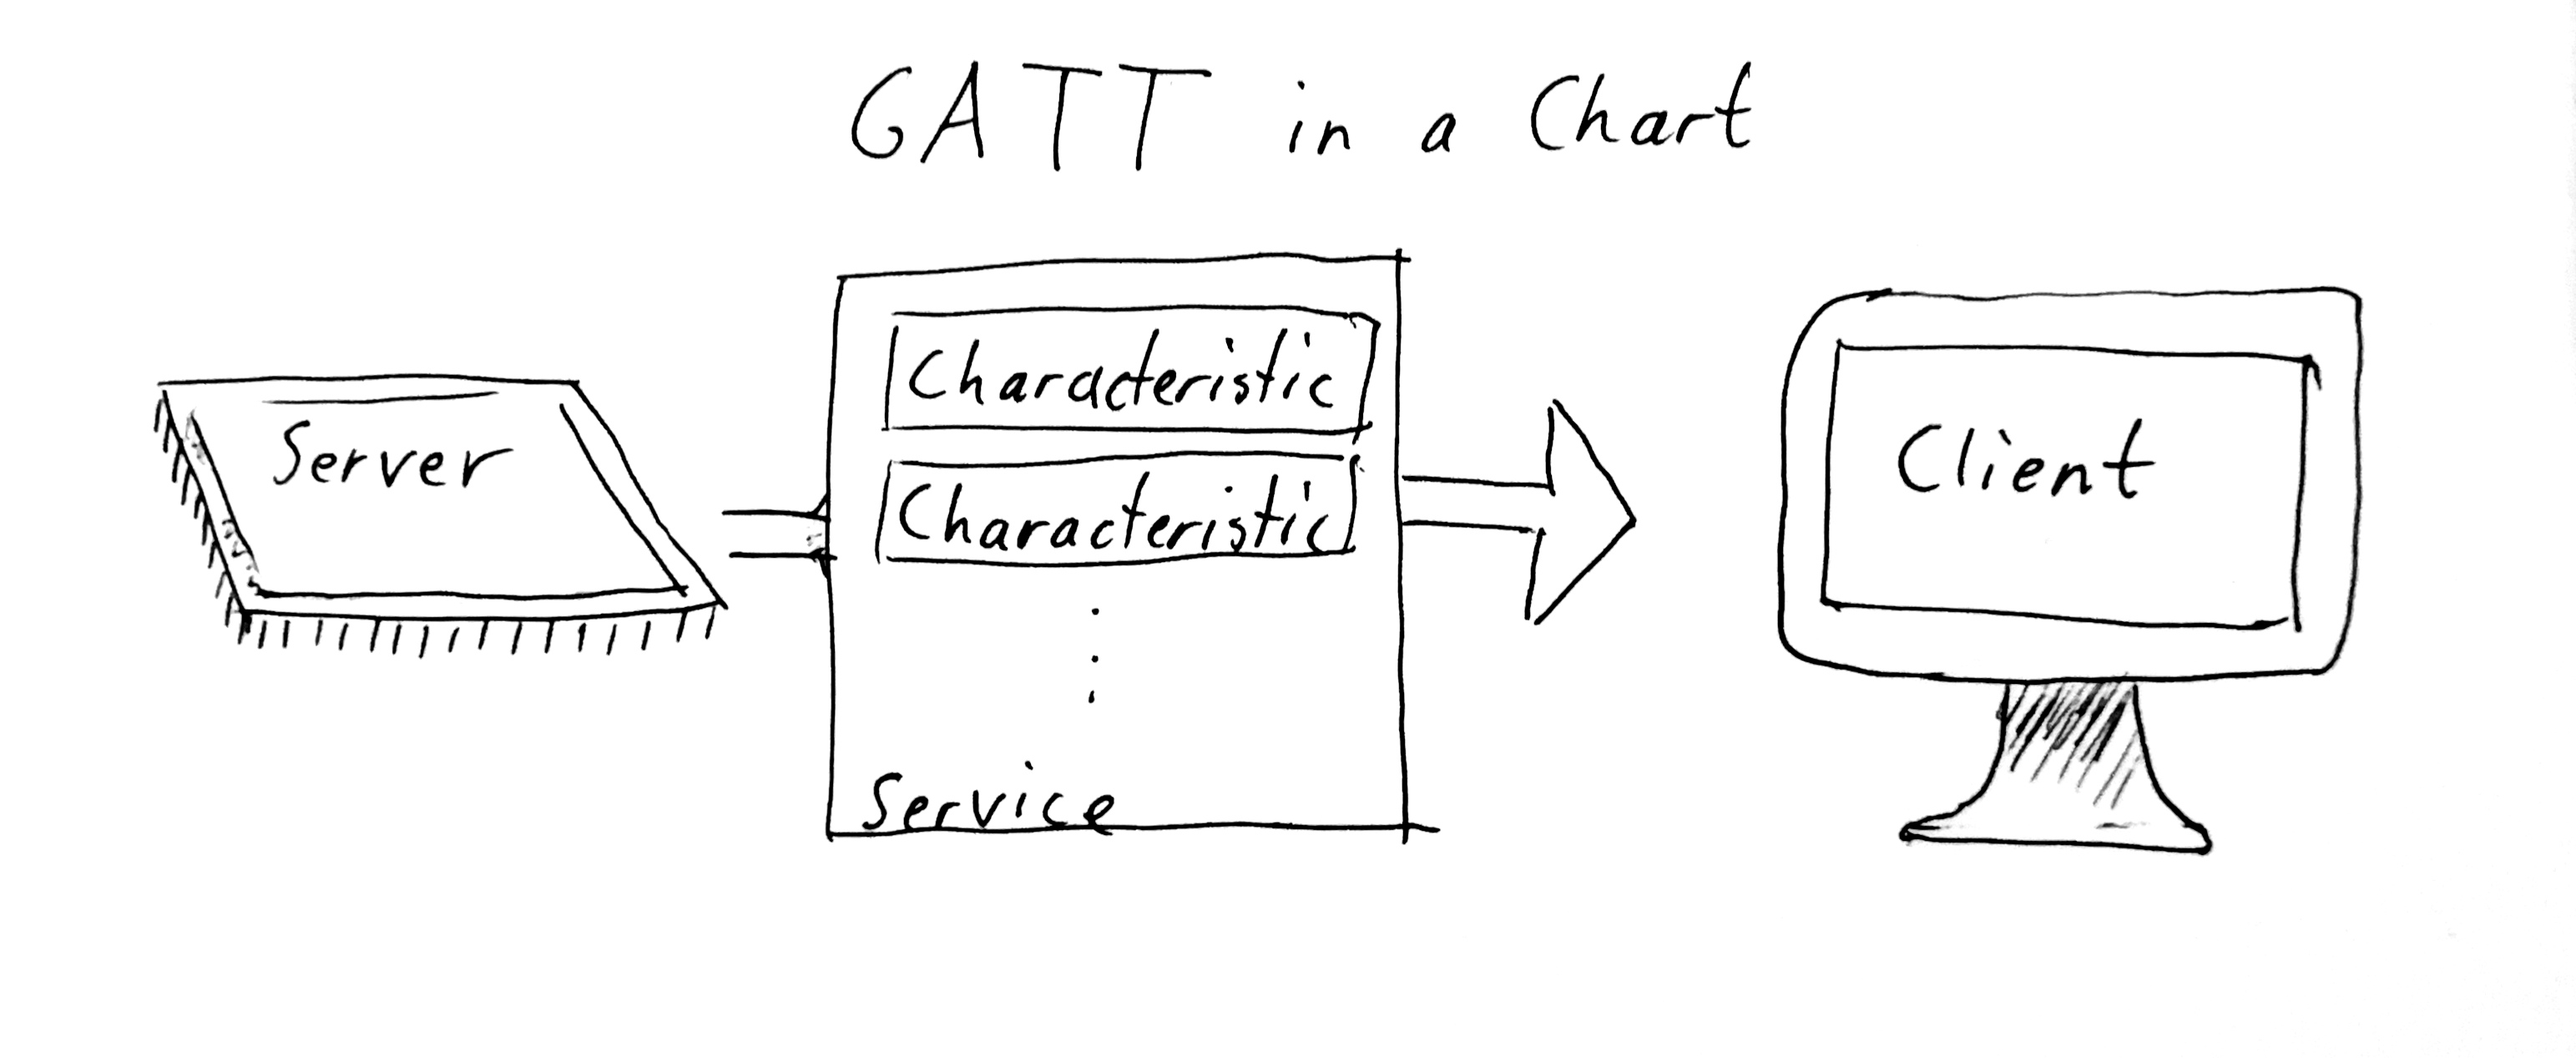 GATT in a Chart
Server
Characteristic
Characteristic
Service
Client